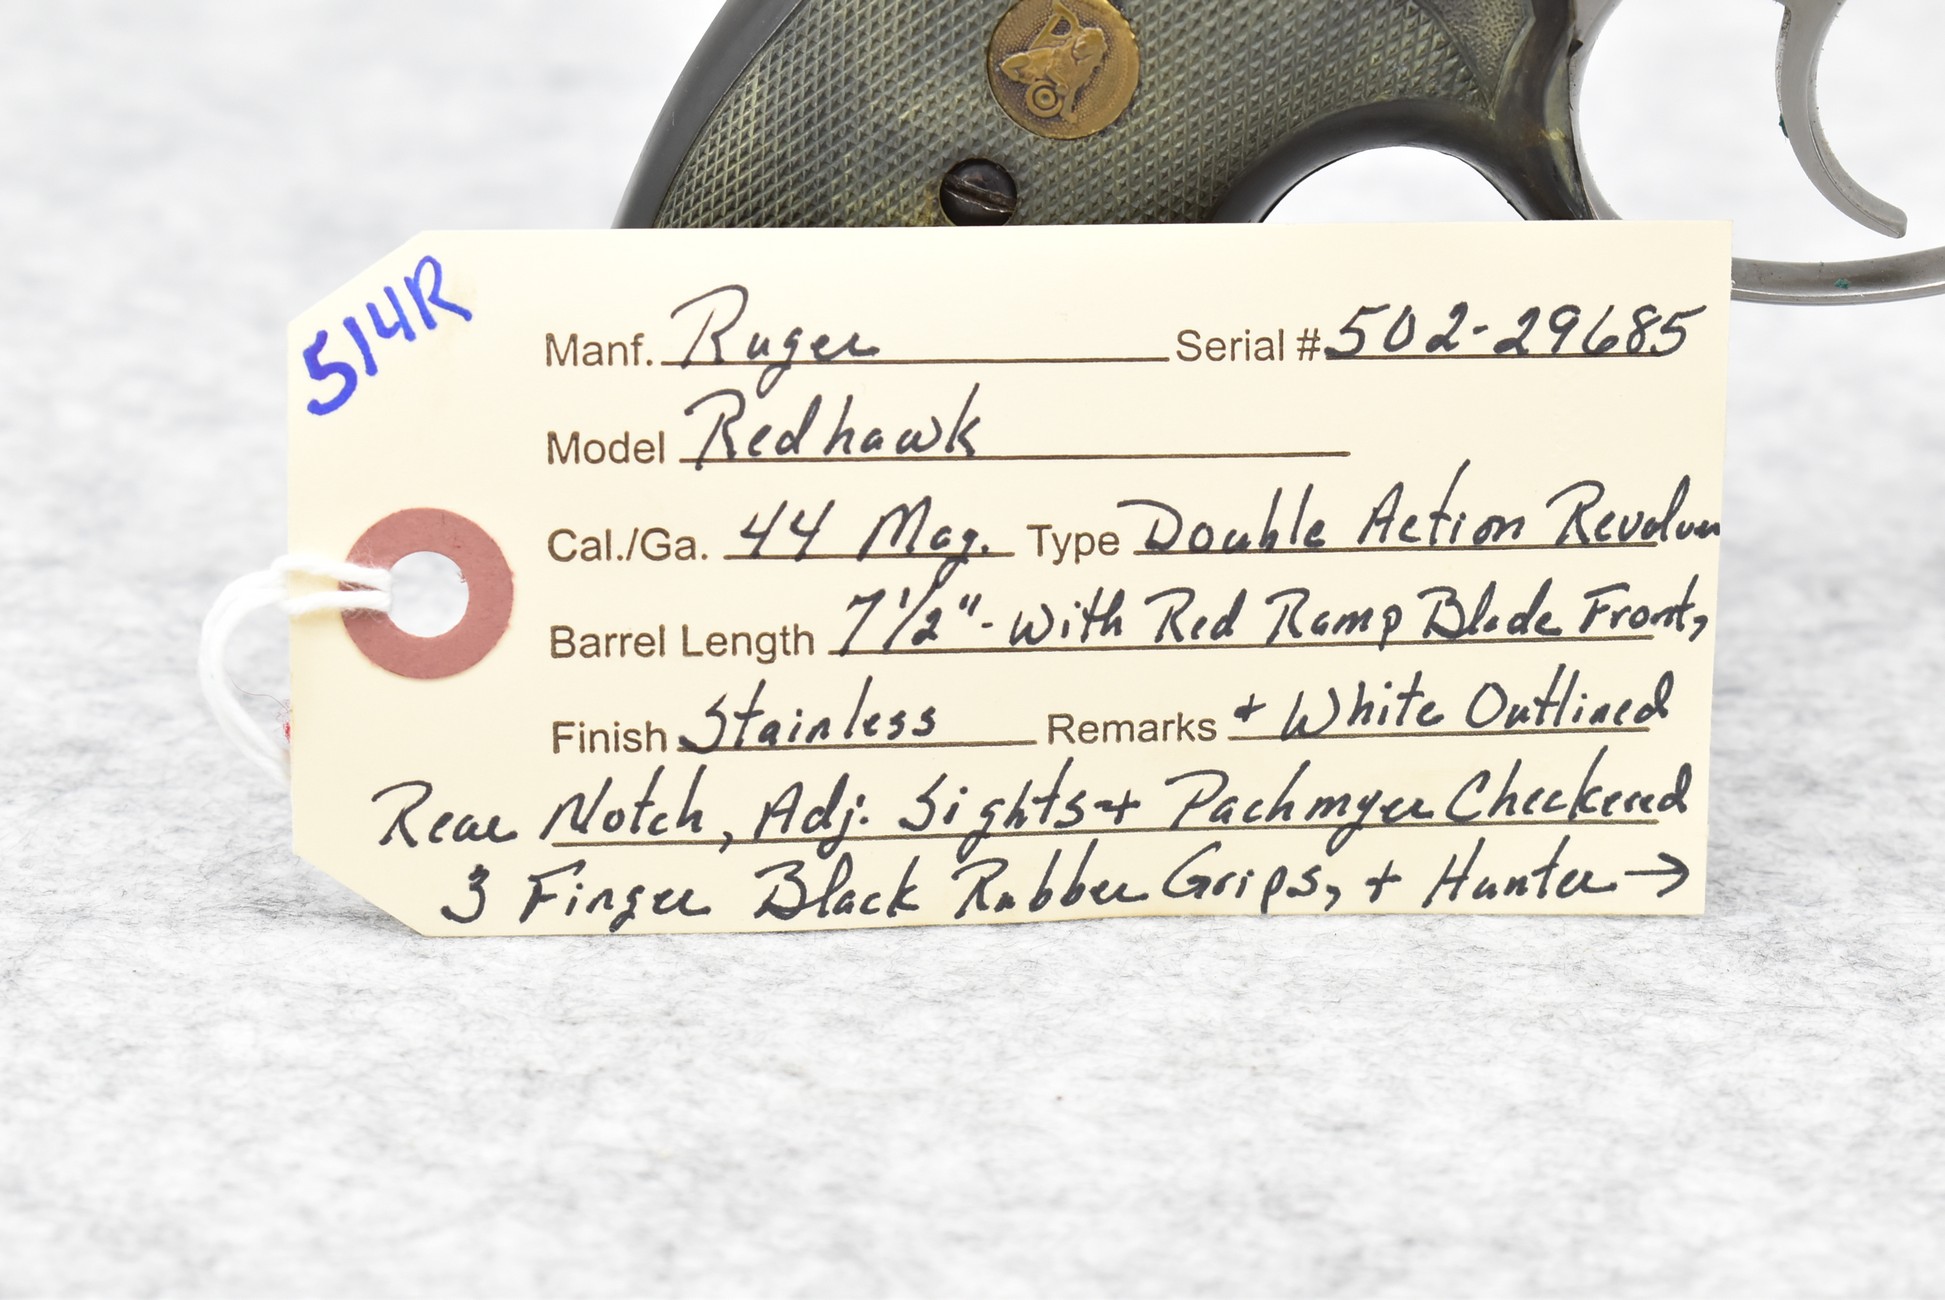 514R
Manf. Ruger Serial # 502-29685
Model Redhawk
Cal./Ga. 44 Mag. Type Double Action Revolver
Barrel Length 7 1/2" - with Red Ramp Blade Front,
Finish Stainless Remarks + White Outlined
Rear Notch, Adj. Sights + Pachmyer Checkered
3 Finger Black Rubber Grips, + Hunter →